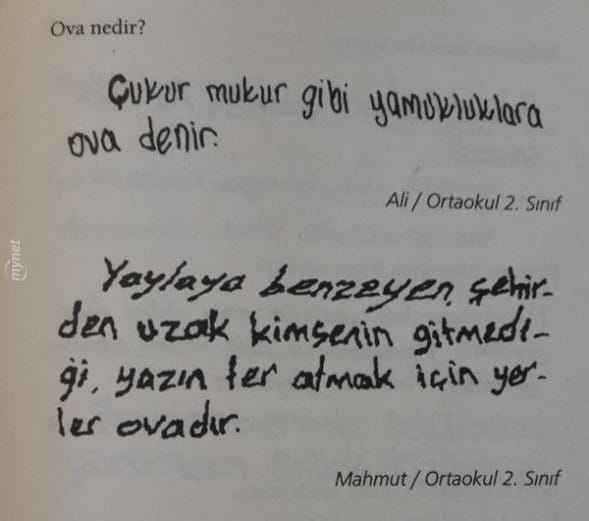 Ova nedir?
Çukur mukur gibi yamukluklara
ova denir.
Ali / Ortaokul 2. Sınıf
Yaylaya benzeyen, şehir-
den uzak kimsenin gitmedi-
ği, yazın ter atmak için yer-
ler ovadır.
Mahmut / Ortaokul 2. Sınıf
mynet